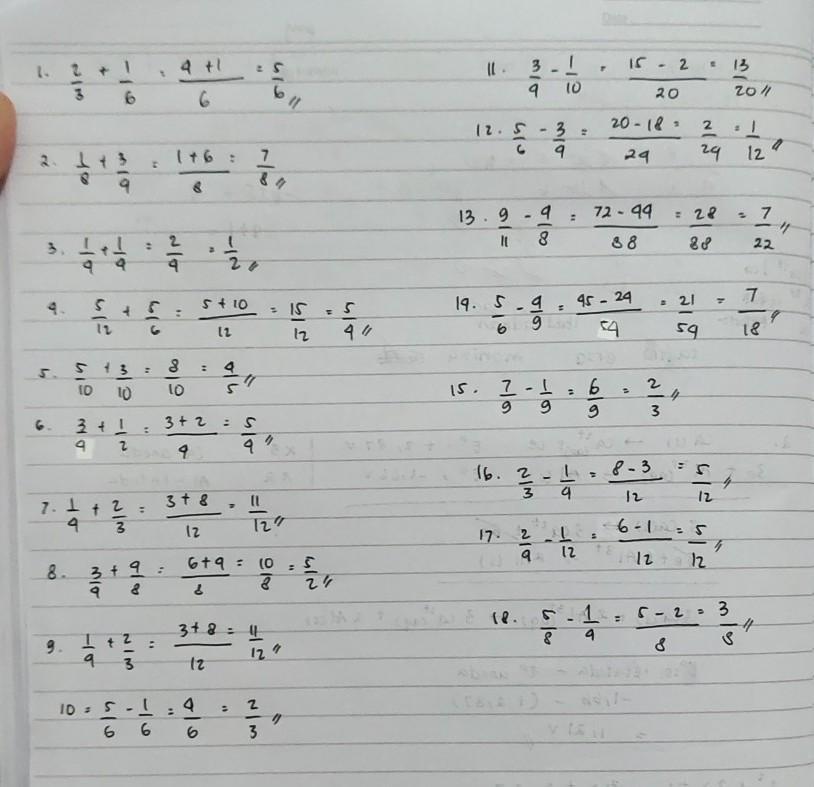 1. 2/3 + 1/6 = (4+1)/6 = 5/6 //
2. 1/8 + 3/4 = (1+6)/8 = 7/8 //
3. 1/4 + 1/4 = 2/4 = 1/2 //
4. 5/12 + 5/6 = (5+10)/12 = 15/12 = 5/4 //
5. 5/10 + 3/10 = 8/10 = 4/5 //
6. 3/4 + 1/2 = (3+2)/4 = 5/4 //
7. 1/4 + 2/3 = (3+8)/12 = 11/12 //
8. 3/4 + 4/8 = (6+4)/8 = 10/8 = 5/2 //
9. 1/4 + 2/3 = (3+8)/12 = 11/12 //
10 = 5/6 - 1/6 = 4/6 = 2/3 //
11. 3/4 - 1/10 = (15-2)/20 = 13/20 //
12. 5/6 - 3/4 = (20-18)/24 = 2/24 = 1/12 //
13. 9/11 - 4/8 = (72-44)/88 = 28/88 = 7/22 //
14. 5/6 - 4/9 = (45-24)/54 = 21/54 = 7/18 //
15. 7/9 - 1/9 = 6/9 = 2/3 //
16. 2/3 - 1/4 = (8-3)/12 = 5/12 //
17. 2/4 - 1/12 = (6-1)/12 = 5/12 //
18. 5/8 - 1/4 = (5-2)/8 = 3/8 //